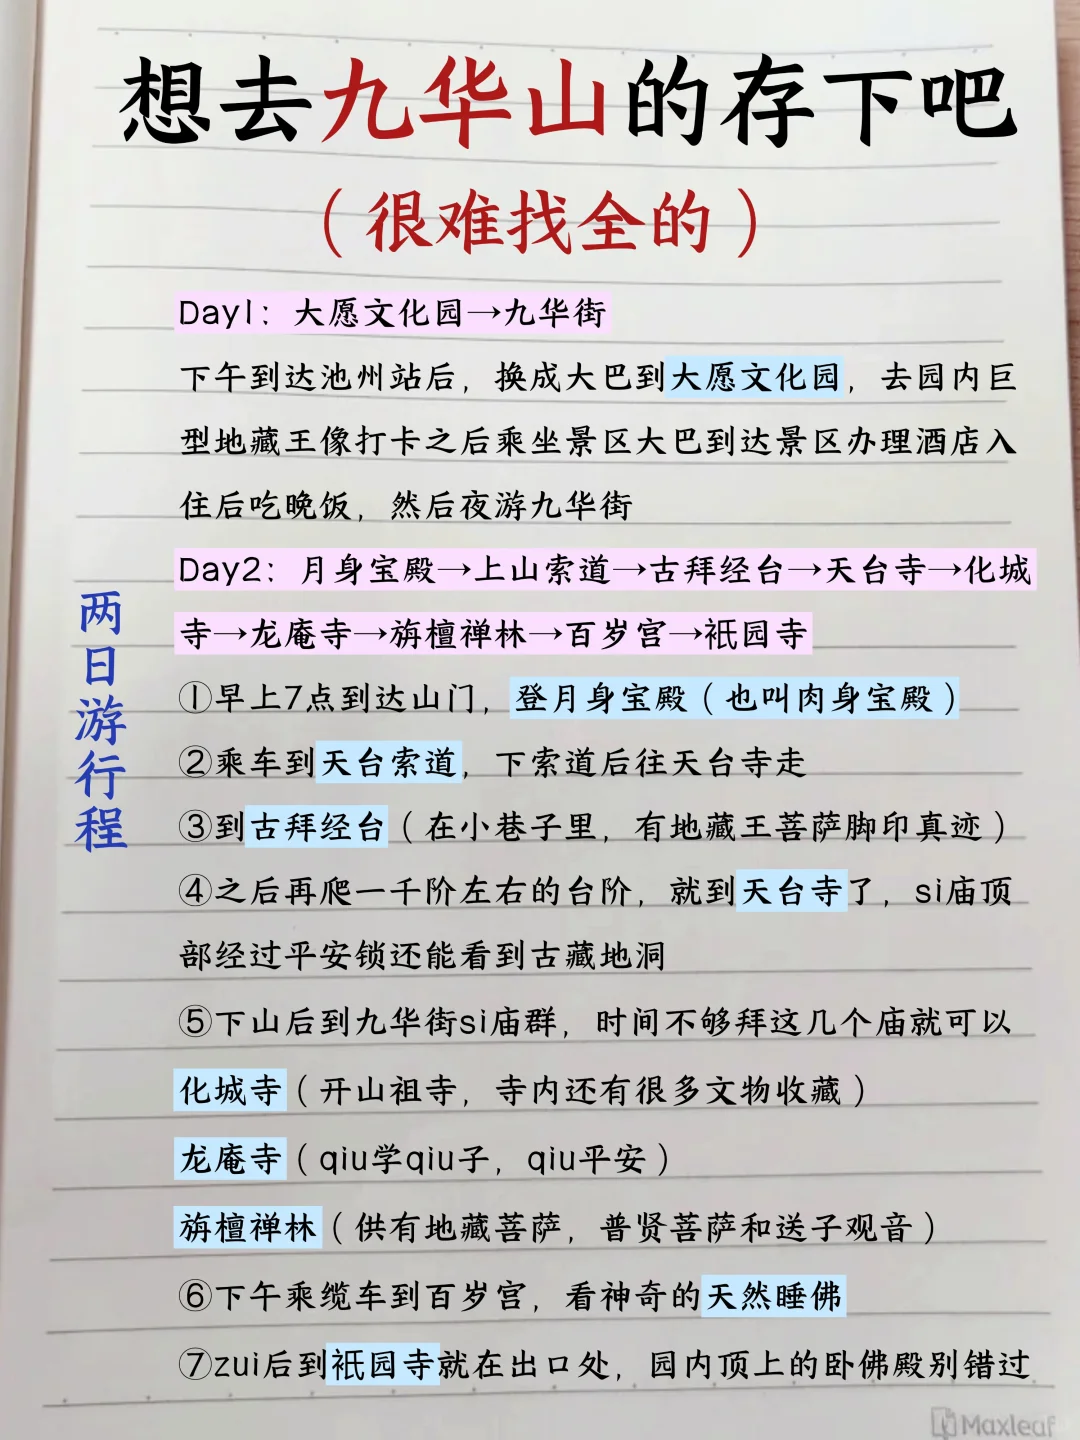 想去九华山的存下吧
（很难找全的）
两日游行程
Day1：大愿文化园→九华街
下午到达池州站后，换成大巴到大愿文化园，去园内巨
型地藏王像打卡之后乘坐景区大巴到达景区办理酒店入
住后吃晚饭，然后夜游九华街
Day2：月身宝殿→上山索道→古拜经台→天台寺→化城
寺→龙庵寺→旃檀禅林→百岁宫→祇园寺
①早上7点到达山门，登月身宝殿（也叫肉身宝殿）
②乘车到天台索道，下索道后往天台寺走
③到古拜经台（在小巷子里，有地藏王菩萨脚印真迹）
④之后再爬一千阶左右的台阶，就到天台寺了，si庙顶
部经过平安锁还能看到古藏地洞
⑤下山后到九华街si庙群，时间不够拜这几个庙就可以
化城寺（开山祖寺，寺内还有很多文物收藏）
龙庵寺（qiu学qiu子，qiu平安）
旃檀禅林（供有地藏菩萨，普贤菩萨和送子观音）
⑥下午乘缆车到百岁宫，看神奇的天然睡佛
⑦zui后到祇园寺就在出口处，园内顶上的卧佛殿别错过
Maxleaf